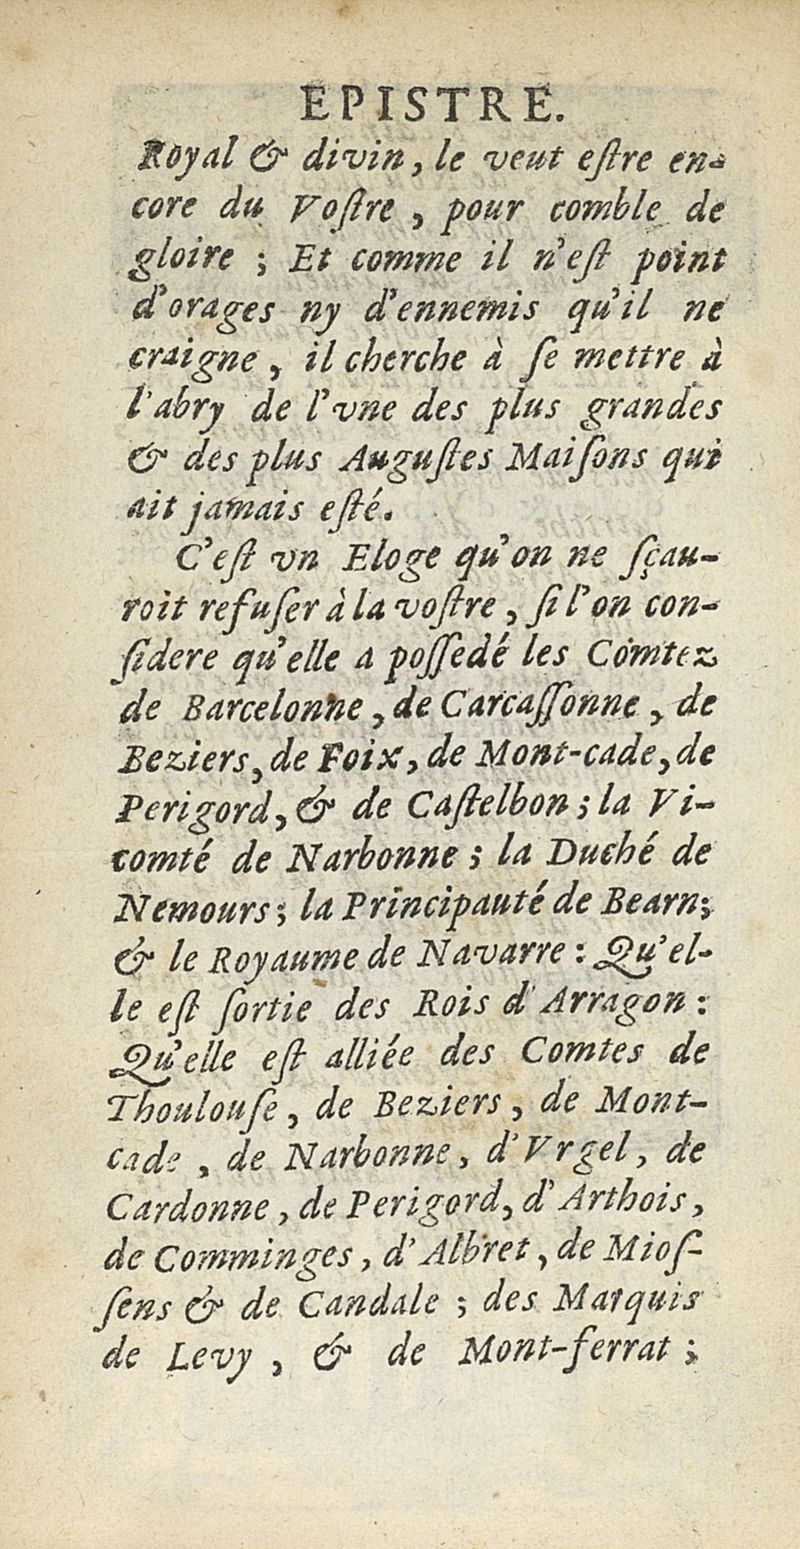 EPISTRE.
Royal & divin, le veut eſtre en-
core du Voſtre, pour comble de
gloire ; Et comme il n'eſt point
d'orages ny d'ennemis qu'il ne
craigne, il cherche à ſe mettre à
l'abry de l'vne des plus grandes
& des plus Auguſtes Maiſons qui
ait jamais eſté.
C'eſt vn Eloge qu'on ne ſçau-
roit refuſer à la voſtre, ſi l'on con-
ſidere qu'elle a poſſedé les Comtez
de Barcelonne, de Carcaſſonne, de
Beziers, de Foix, de Mont-cade, de
Perigord, & de Caſtelbon ; la Vi-
comté de Narbonne ; la Duché de
Nemours ; la Principauté de Bearn ;
& le Royaume de Navarre : Qu'el-
le eſt ſortie des Rois d'Arragon :
Qu'elle eſt alliée des Comtes de
Thoulouſe, de Beziers, de Mont-
cade, de Narbonne, d'Vrgel, de
Cardonne, de Perigord, d'Arthois,
de Comminges, d'Albret, de Mioſ-
ſens & de Candale ; des Marquis
de Levy, & de Mont-ferrat ;